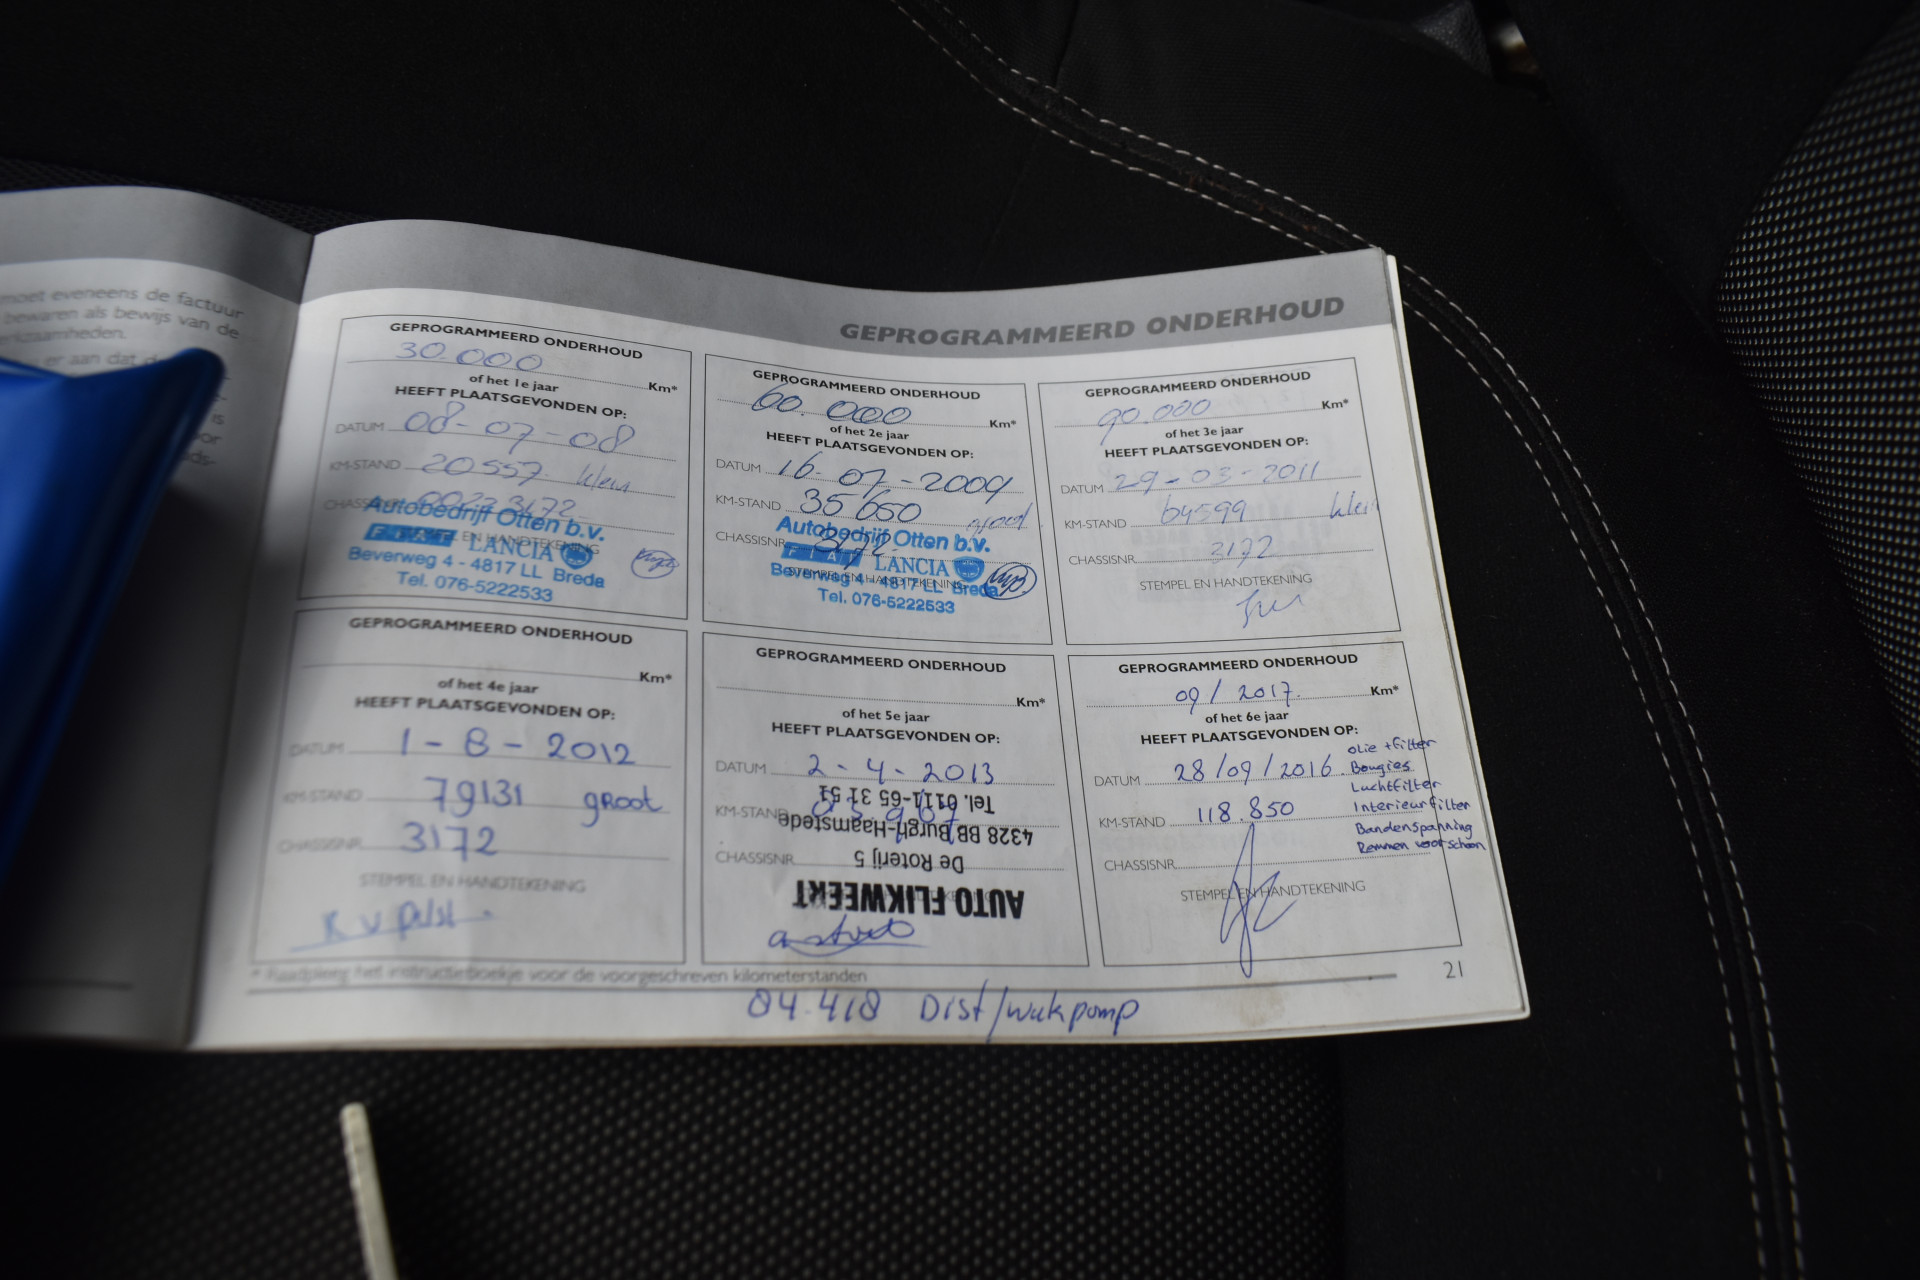 moet eveneens de factuur
bewaren als bewijs van de
er aan dat
GEPROGRAMMEERD ONDERHOUD
GEPROGRAMMEERD ONDERHOUD
30.000 Km*
of het 1e jaar
HEEFT PLAATSGEVONDEN OP:
DATUM 08-07-08
KM-STAND 20557 klein
00223172
Autobedrijf Otten b.v.
EN HANDTEKENING
FIAT LANCIA
Beverweg 4 - 4817 LL Breda
Tel. 076-5222533
GEPROGRAMMEERD ONDERHOUD
60.000 Km*
of het 2e jaar
HEEFT PLAATSGEVONDEN OP:
DATUM 16-07-2009
KM-STAND 35650 groot
CHASSISNR. 3172
Autobedrijf Otten b.v.
FIAT LANCIA
STEMPEL EN HANDTEKENING
Beverweg 4 - 4817 LL Breda
Tel. 076-5222533
GEPROGRAMMEERD ONDERHOUD
90.000 Km*
of het 3e jaar
HEEFT PLAATSGEVONDEN OP:
DATUM 29-03-2011
KM-STAND 64599 klein
CHASSISNR. 3172
STEMPEL EN HANDTEKENING
GEPROGRAMMEERD ONDERHOUD
Km*
of het 4e jaar
HEEFT PLAATSGEVONDEN OP:
DATUM 1-8-2012
KM-STAND 79131 groot
CHASSISNR. 3172
STEMPEL EN HANDTEKENING
GEPROGRAMMEERD ONDERHOUD
Km*
of het 5e jaar
HEEFT PLAATSGEVONDEN OP:
DATUM 2-4-2013
KM-STAND
CHASSISNR.
AUTO FLIKWEERT
De Roterij 5
4328 BB Burgh-Haamstede
Tel. 0111-65 31 51
GEPROGRAMMEERD ONDERHOUD
09/2017. Km*
of het 6e jaar
HEEFT PLAATSGEVONDEN OP:
DATUM 28/09/2016
KM-STAND 118.850
CHASSISNR.
STEMPEL EN HANDTEKENING
olie + filter
Bougies
Luchtfilter
Interieurfilter
Bandenspanning
Remmen voor schoon
* Raadpleeg het instructieboekje voor de voorgeschreven kilometerstanden
21
84.418 Dist/wakpomp